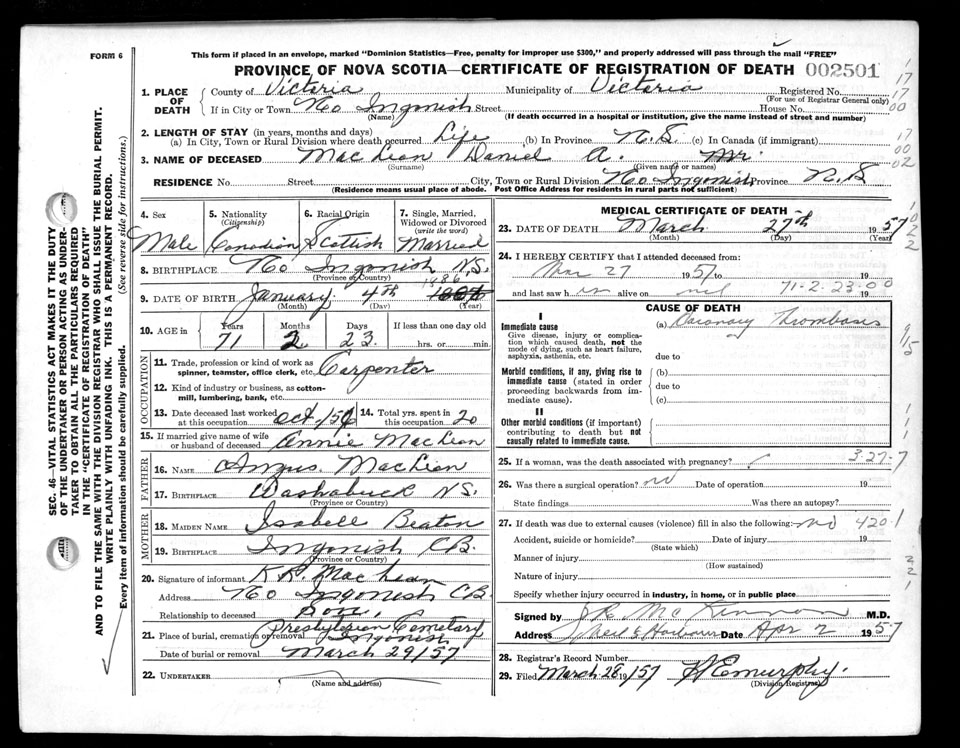 FORM 6
This form if placed in an envelope, marked "Dominion Statistics—Free, penalty for improper use $300," and properly addressed will pass through the mail "FREE"
PROVINCE OF NOVA SCOTIA—CERTIFICATE OF REGISTRATION OF DEATH 002501
1. PLACE OF DEATH
County of Victoria Municipality of Victoria Registered No.
(For use of Registrar General only)
If in City or Town No Ingonish Street House No.
(Name) (If death occurred in a hospital or institution, give the name instead of street and number)
2. LENGTH OF STAY (in years, months and days)
(a) In City, Town or Rural Division where death occurred Life (b) In Province N.S. (c) In Canada (if immigrant)
3. NAME OF DECEASED MacLean Daniel A. Mr.
(Surname) (Given name or names)
RESIDENCE No. Street City, Town or Rural Division No Ingonish Province N.S
(Residence means usual place of abode. Post Office Address for residents in rural parts not sufficient)
4. Sex
Male
5. Nationality
(Citizenship)
Canadian
6. Racial Origin
Scottish
7. Single, Married, Widowed or Divorced
(write the word)
Married
8. BIRTHPLACE No Ingonish N.S.
(Province or Country)
9. DATE OF BIRTH January 4th 1886
(Month) (Day) (Year)
10. AGE in
Years Months Days If less than one day old
71 2 23 hrs. or min.
OCCUPATION
11. Trade, profession or kind of work as spinner, teamster, office clerk, etc. Carpenter
12. Kind of industry or business, as cotton-mill, lumbering, bank, etc.
13. Date deceased last worked at this occupation Oct/56 14. Total yrs. spent in this occupation 20
15. If married give name of wife or husband of deceased Annie MacLean
FATHER
16. NAME Angus MacLean
17. BIRTHPLACE Washabuck NS.
(Province or Country)
MOTHER
18. MAIDEN NAME Isabell Beaton
19. BIRTHPLACE Ingonish CB.
(Province or Country)
20. Signature of informant K R. MacLean
Address No Ingonish CB.
Relationship to deceased Son.
21. Place of burial, cremation or removal Presbyterian Cemetary Ingonish
Date of burial or removal March 29/57
22. UNDERTAKER
(Name and address)
MEDICAL CERTIFICATE OF DEATH
23. DATE OF DEATH March 27th 1957
(Month) (Day) (Year)
24. I HEREBY CERTIFY that I attended deceased from:
Mar 27 1957
71-2-23-00
and last saw h im alive on nil 19
CAUSE OF DEATH
I
Immediate cause
Give disease, injury or complication which caused death, not the mode of dying, such as heart failure, asphyxia, asthenia, etc.
(a) Coronary Thrombosis
due to
Morbid conditions, if any, giving rise to immediate cause (stated in order proceeding backwards from immediate cause).
(b)
due to
(c)
II
Other morbid conditions (if important) contributing to death but not causally related to immediate cause.
3-27-7
25. If a woman, was the death associated with pregnancy?
26. Was there a surgical operation? no Date of operation 19
State findings Was there an autopsy?
27. If death was due to external causes (violence) fill in also the following: no 420.1
Accident, suicide or homicide? Date of injury 19
(State which)
Manner of injury
(How sustained)
Nature of injury
Specify whether injury occurred in industry, in home, or in public place
Signed by McKinnon M.D.
Address Neil's Harbour Date Apr 2 1957
28. Registrar's Record Number
29. Filed March 28 19/57 Murphy.
(Division Registrar)
SEC. 46—VITAL STATISTICS ACT MAKES IT THE DUTY
OF THE UNDERTAKER OR PERSON ACTING AS UNDER-
TAKER TO OBTAIN ALL THE PARTICULARS REQUIRED
IN THE "CERTIFICATE OF REGISTRATION OF DEATH"
AND TO FILE THE SAME WITH THE DIVISION REGISTRAR WHO SHALL ISSUE THE BURIAL PERMIT.
WRITE PLAINLY WITH UNFADING INK. THIS IS A PERMANENT RECORD.
Every item of information should be carefully supplied. (See reverse side for instructions.)
17
17
00
17
00
02